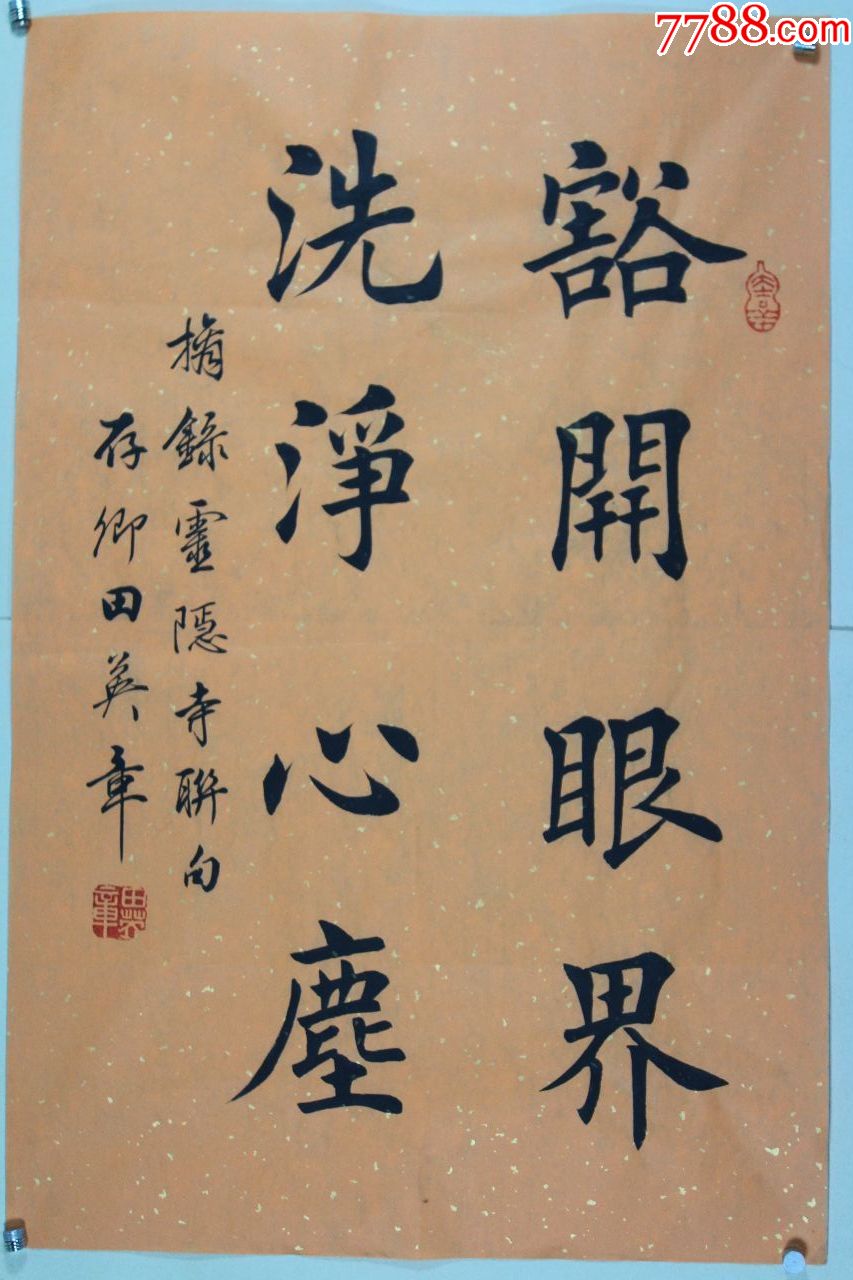 7788.com
豁開眼界
洗淨心塵
摘錄靈隱寺聯句
存卿田英章
田英章